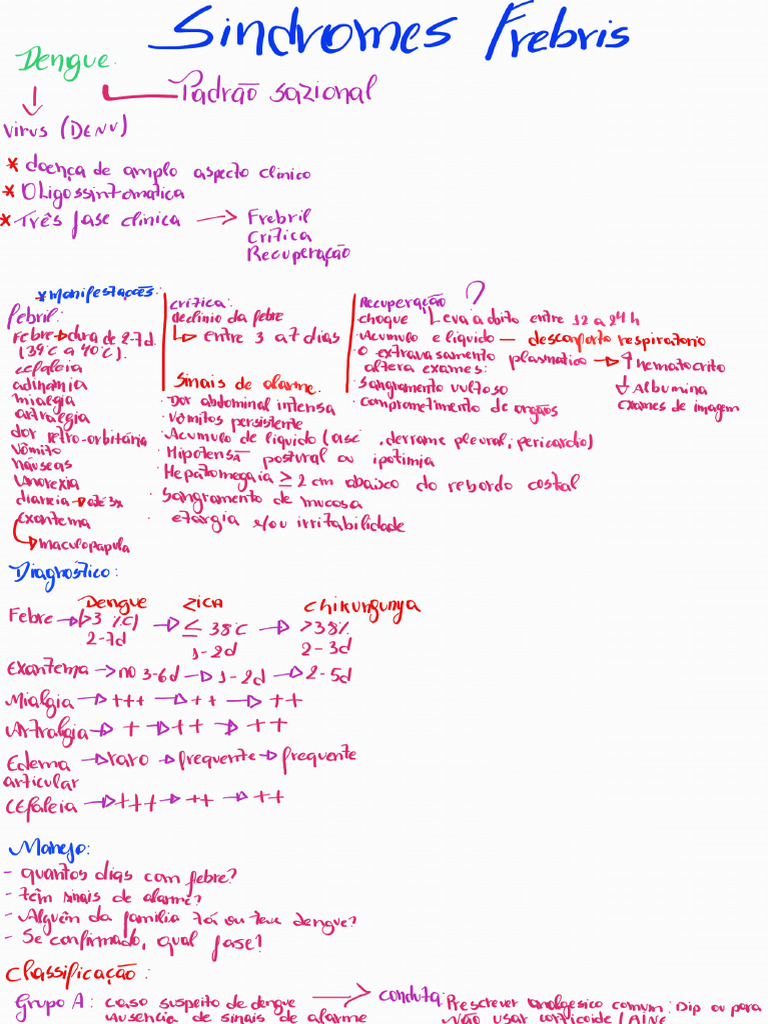 Sindromes Frebris
Dengue.
Padrão sazional
virus (DENV)
* doença de amplo aspecto clinico
* Oligossintomatica
* Três fase clinica → Frebril
Crítica
Recuperação
*Manifestações:
febril:
Febre → dura de 2-7d
(39°C a 40°C).
cefaleia
adinamia
mialgia
artralgia
dor retro-orbitária
vômito
náuseas
anorexia
diarreia → até 3x
exantema
→ maculopapula
crítica:
declinio da febre
→ entre 3 a 7 dias
Sinais de alarme.
· Dor abdominal intensa
· vômitos persistente
· Acumulo de liquido (asc , derrame pleural, pericardio)
· Hipotensã postural ou ipotimia
· Hepatomegaia ≥ 2 cm abaixo do rebordo costal
· Sangramento de mucosa
· etargia e/ou irritabilidade
Recuperação ?
· choque "Leva a óbito entre 12 a 24 h
· Acumulo e liquido — desconforto respiratorio
· O extravasamento plasmatico → ↑ hematocrito
altera exames:
↓ Albumina
exames de imagem
· Sangramento vultoso
· Comprometimento de orgãos
Diagnóstico:
Dengue ZICA Chikungunya
Febre → (>3 °C) → ≤ 38°C → >38%
2-7d 1-2d 2-3d
Exantema → no 3-6d → 1-2d → 2-5d
Mialgia → +++ → ++ → ++
Artralgia → + → ++ → ++
Edema → raro → frequente → frequente
articular
Cefaleia → +++ → ++ → ++
Manejo:
- quantos dias com febre?
- têm sinais de alarme?
- Alguém da familia tá ou teve dengue?
- Se confirmado, qual fase?
Classificação:
Grupo A: caso suspeito de dengue → conduta: Prescrever analgesico comum: Dip ou para
Ausencia de sinais de alarme Não usar corticoide / AINE